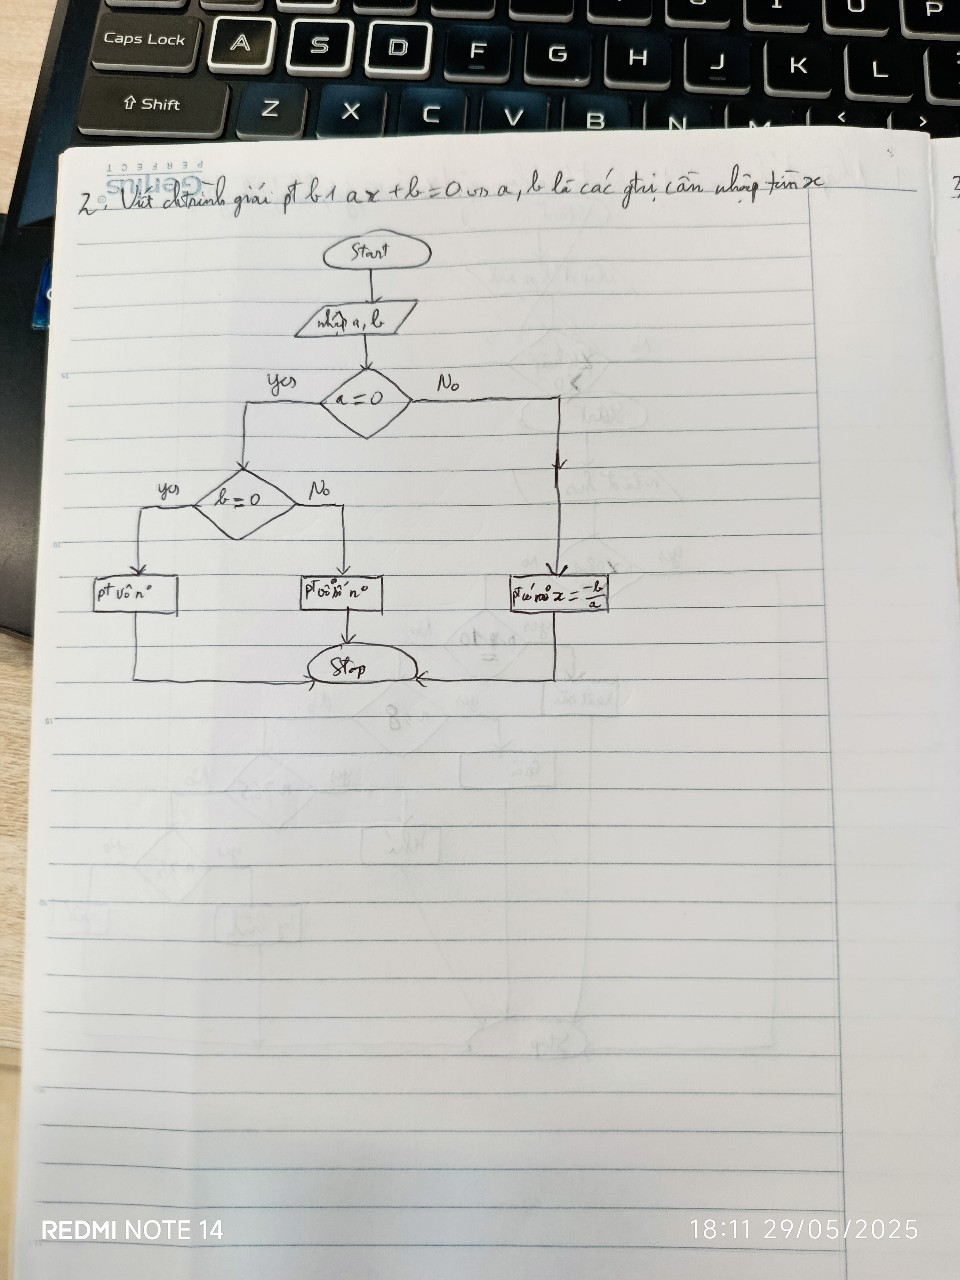 Caps Lock A S D F G H J K L
⇧ Shift Z X C V B N M < >
Genius
PERFECT
2. Viết ctrình giải pt b1 ax + b = 0 với a, b là các gtrị cần nhập tìm x
Start
nhập a, b
yes a = 0 No
yes b = 0 No
pt vô n°
pt vô số n°
pt có n° x = -b/a
Stop
REDMI NOTE 14
18:11 29/05/2025